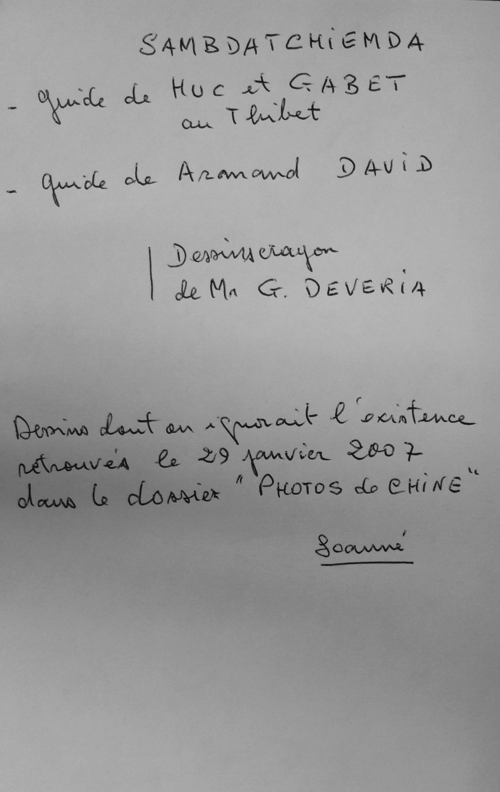 SAMBDATCHiEMDA
- guide de HUC et GABET
au Thibet
- guide de Armand DAViD
Dessins crayon
de Mr G. DEVERiA
Dessins dont on ignorait l'existence
retrouvés le 29 janvier 2007
dans le dossier "PHOTOS de CHiNE"